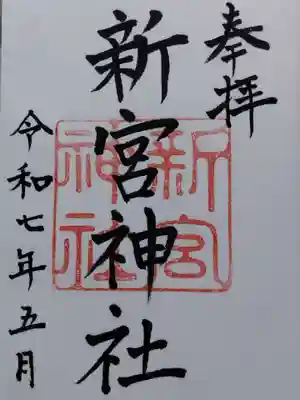 奉拝
新宮神社
新宮神社
令和七年五月